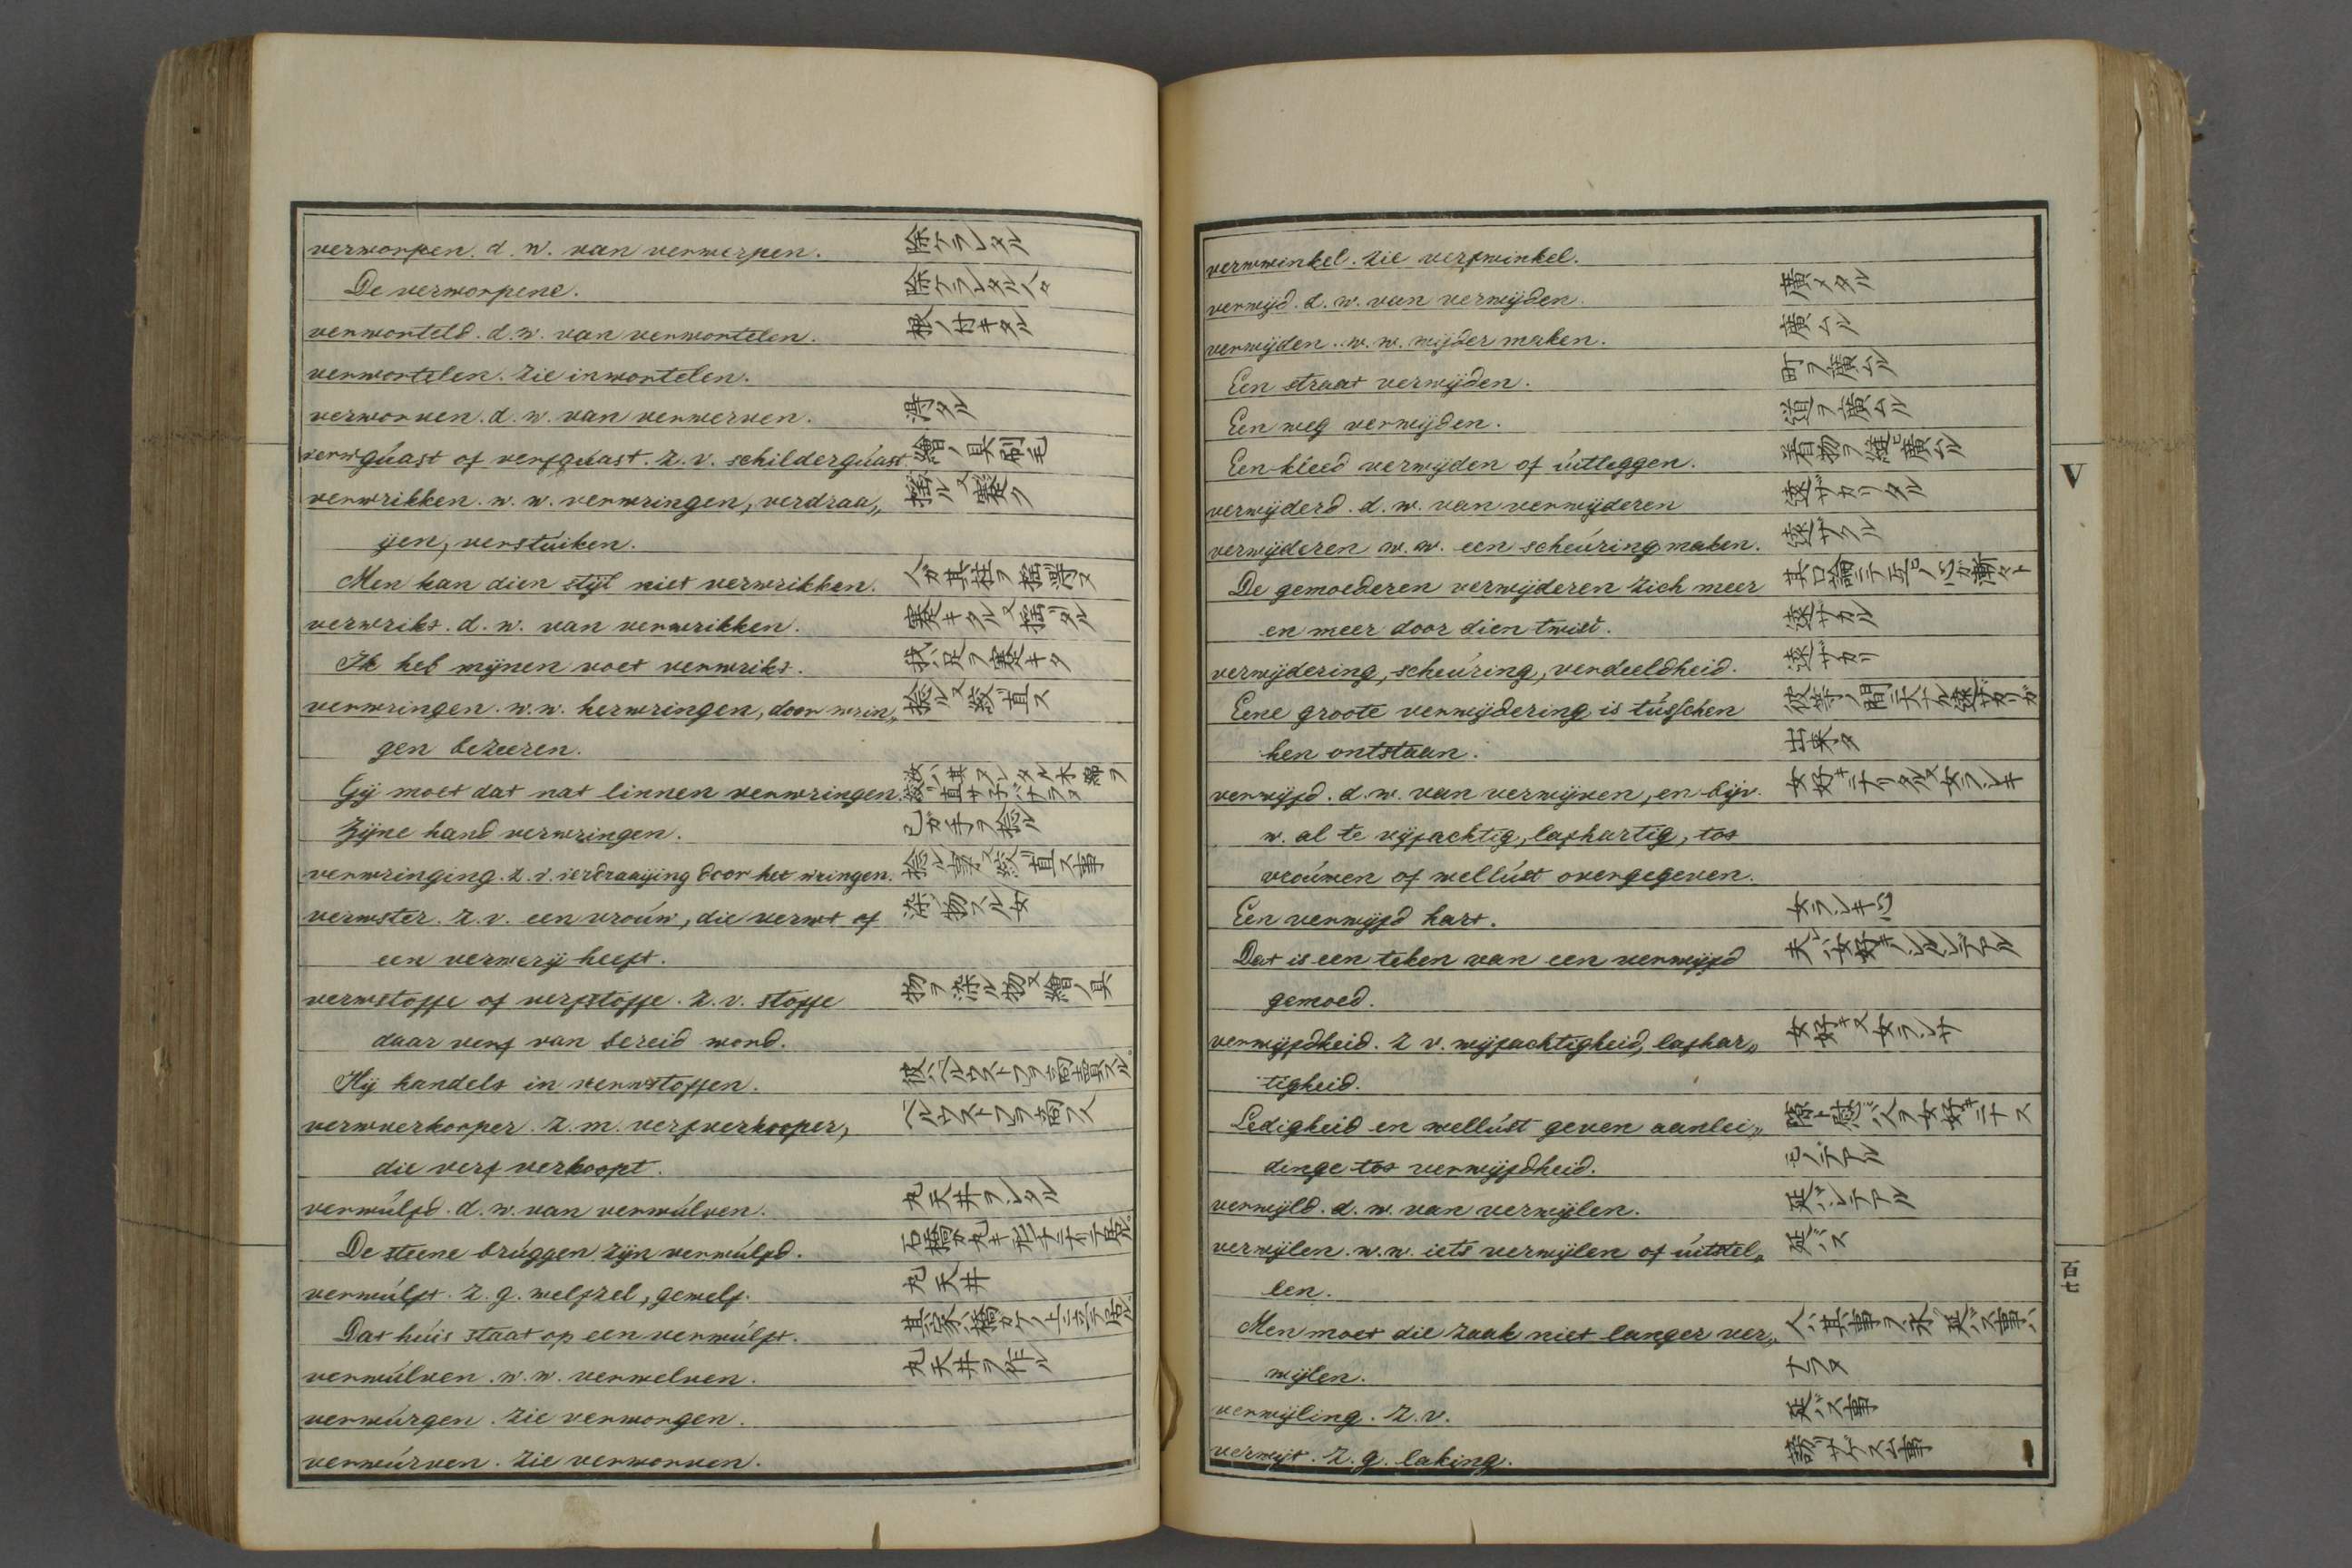 verworpen. d. w. van verwerpen. 除ケラレタル
De verworpene. 除ケラレタル人々
verworteld. d. w. van verwortelen. 根ノ付キタル
verwortelen. Zie inwortelen.
verworven. d. w. van verwerven. 得タル
verwqúast of verfqúast. Z. v. schilderqúast. 繪ノ具刷毛
verwrikken. w. w. verwringen, verdraa„
ijen, verstúiken.
Men kan dien stijl niet verwrikken.
verwrikt. d. w. van verwrikken.
Ik heb mijnen voet verwrikt.
verwringen. w. w. herwringen, door wrin„
gen bezeeren.
Gij moet dat nat linnen verwringen.
Zijne hand verwringen. 己ガ手ヲ捻ル
verwringing. Z. v. verdraaijing door het wringen.
verwster. Z. v. een vroúw, die verwt of 染物スル女
een verwerij heeft.
verwstoffe of verfstoffe. Z. v. stoffe 物ヲ染ル物又繪ノ具
daar verf van bereid word.
Hij handelt in verwstoffen.
verwverkooper. Z. m. verfverkooper,
die verf verkoopt.
verwúlfd. d. w. van verwúlven. 丸天井ヲシタル
De steene brúggen zijn verwúlfd.
verwúlft. Z. g. welfzel, gewelf. 丸天井
Dat húis staat op een verwúlft.
verwúlven. w. w. verwelven. 丸天井ヲ作ル
verwúrgen. Zie verworgen.
verwúrven. Zie verworven.
verwwinkel. Zie verfwinkel.
verwijd. d. w. van verwijden. 廣メタル
verwijden. w. w. wijder maken. 廣ムル
Een straat verwijden. 町ヲ廣ムル
Een weg verwijden. 道ヲ廣ムル
Een kleed verwijden of úitleggen. 着物ヲ縫廣ムル
verwijderd. d. w. van verwijderen 遠ザカリタル
verwijderen w. w. een scheúring maken. 遠ザクル
De gemoederen verwijderen zich meer
en meer door dien twist. 遠ザカル
verwijdering, scheúring, verdeeldheid. 遠ザカリ
Eene groote verwijdering is tússchen 彼等ノ間ニ大ナル遠ザカリガ
hen ontstaan. 出来タ
verwijfd. d. w. van verwijven, en bijv.
w. al te wijfachtig, lafhartig, tot
vroúwen of wellúst overgegeven.
Een verwijfd hart. 女ラシキ心
Dat is een teken van een verwijfd
gemoed.
verwijfdheid. Z v. wijfachtigheid, lafhar„
tigheid.
Ledigheid en wellúst geven aanlei„
dinge tot verwijfdheid.
verwijld. d. w. van verwijlen. 延バシテアル
verwijlen. w. w. iets verwijlen of úitstel„ 延バス
len.
Men moet die zaak niet langer ver„ 人ハ其事ヲ永ク延バス事ハ
wijlen. ナラヌ
verwijling. Z. v. 延バス事
verwijt. Z. g. laking.
V
百七